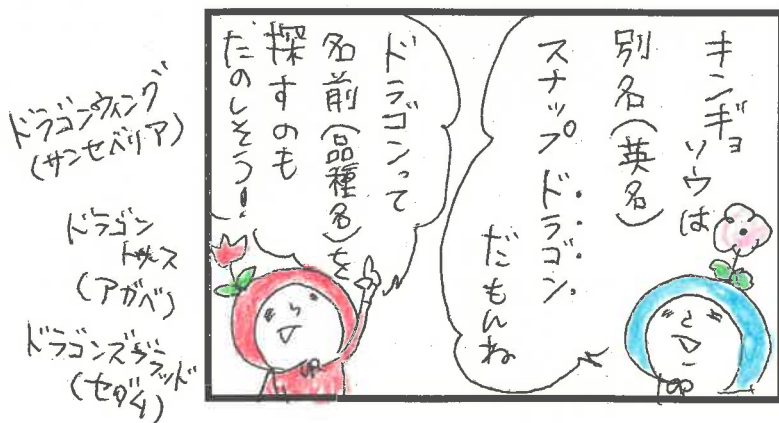 キンギョ
ソウは
別名(英名)
スナップドラゴン
だもんね
ドラゴンって
名前(品種名)を
探すのも
たのしそう!
ドラゴンウィング
(サンセベリア)
ドラゴン
トゥース
(アガベ)
ドラゴンズブラッド
(セダム)